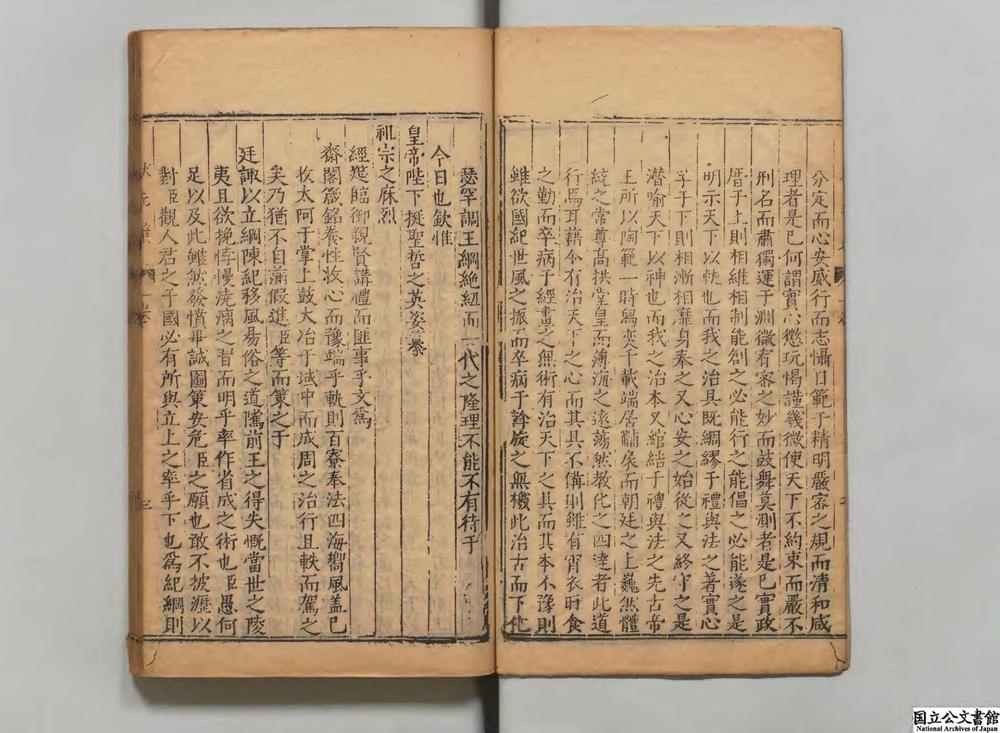 分定而心安威行而志懾日範于精明嚴密之規而清和咸
理者是已何謂實心懲玩愒謹幾微使天下不約束而嚴不
刑名而肅獨運于淵微有密之妙而鼓舞莫測者是已實政
厝于上則相維相制能創之必能行之能倡之必能遂之是
明示天下以軌也而我之治具既綢繆于禮與法之著實心
孚于下則相漸相靡身奉之又心安之始從之又終守之是
潛喻天下以神也而我之治本又綰結于禮與法之先古帝
王所以陶範一時爲奕千載端居黼扆而朝廷之上巍然體
統之常尊高拱堂皇而薄海之遠蕩然教化之四達者此道
行焉耳藉令有治天下之心而其具不備則雖有宵衣旰食
之勤而卒病于經畫之無術有治天下之具而其本不豫則
雖欲國紀世風之振而卒病于斡旋之無機此治古而下化
瑟罕調王綱絶紐而三代之隆理不能不有待于
今日也欽惟
皇帝陛下挺聖哲之英姿纂
祖宗之庥烈
經筵臨御親賢講禮而匪事乎文爲
齋閣箴銘養性收心而豫端乎軌則百寮奉法四海嚮風蓋已
收太阿于掌上鼓大冶于域中而成周之治行且軼而駕之
矣乃猶不自滿假進臣等而策之于
廷諏以立綱陳紀移風易俗之道隲前王之得失慨當世之陵
夷且欲挽悖慢澆漓之習而明乎率作省成之術也臣愚何
足以及此雖然發憤畢誠圖策安危臣之願也敢不披瀝以
對臣觀人君之于國必有所與立上之率乎下也爲紀綱則
三